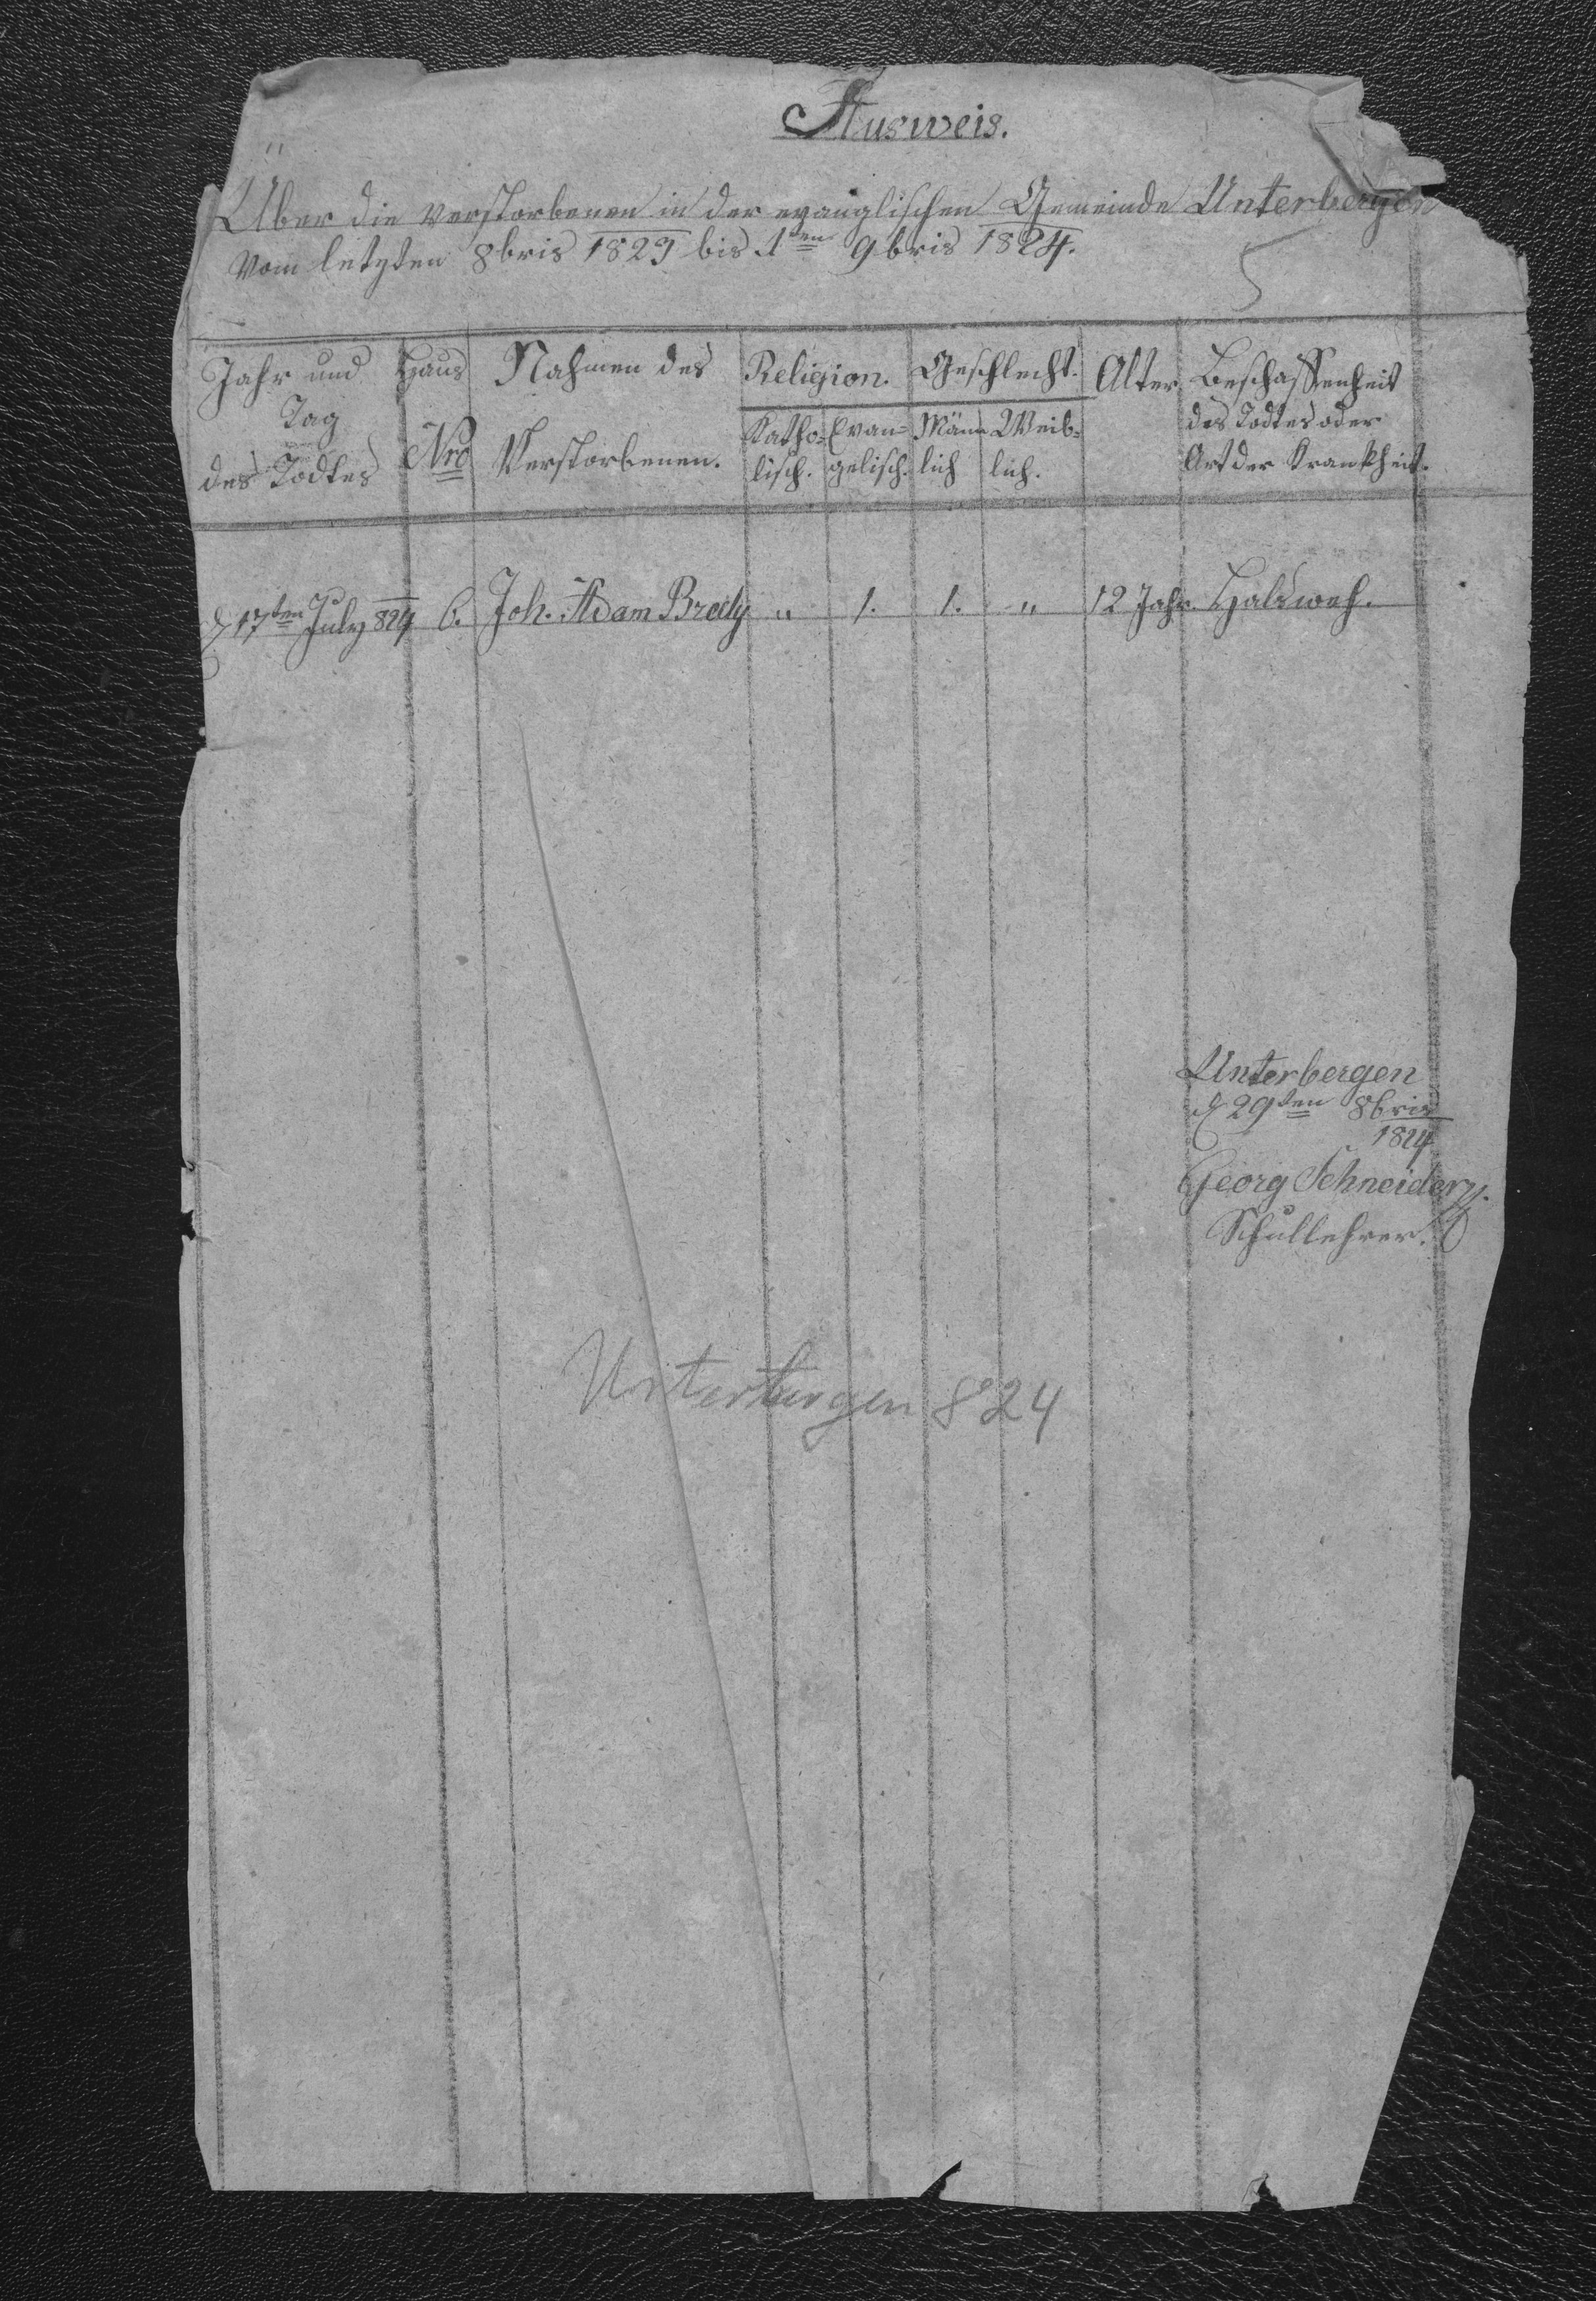 Ausweis.
Über die verstorbenen in der evanglischen Gemeinde Unterbergen
vom letzten 8bris 1823 bis 1ten 9bris 1824.
5
Jahr und Tag des Todtes
Haus Nro
Nahmen des Verstorbenen.
Religion.
Katholisch.
Evangelisch.
Geschlecht.
Männlich
Weiblich.
Alter
Beschaffenheit des Todtes oder Art der Krankheit.
d 17ten July 824 6. Joh. Adam Bredy " 1. 1. " 12 Jahr. Halsweh.
Unterbergen
d 29ten 8bris
1824
Georg Schneider
Schullehrer.
Unterbergen 824